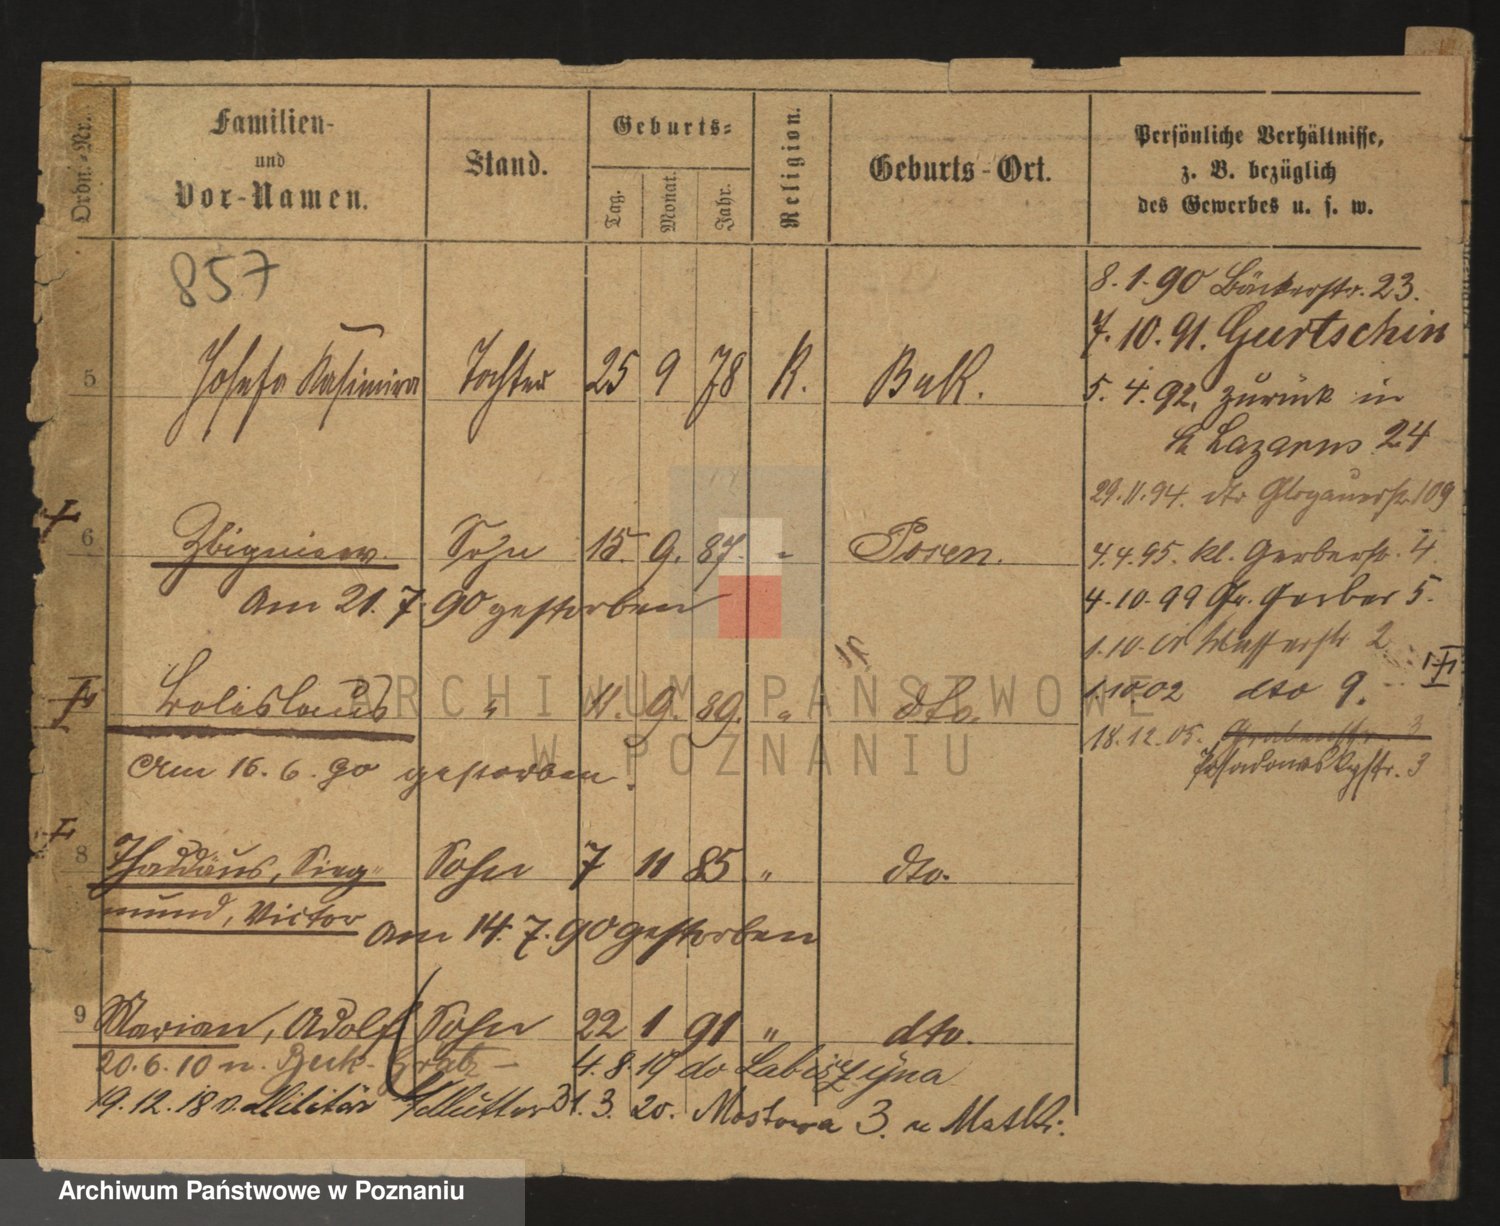 Ordn.-Nr.
Familien-
und
Vor-Namen.
Stand.
Geburts-
Tag.
Monat.
Jahr.
Religion.
Geburts-Ort.
Persönliche Verhältnisse,
z. B. bezüglich
des Gewerbes u. s. w.
857
5 Josefa Kasimira Tochter 25 9 78 K. Buk.
6 Zbigniew. Sohn 15. 9. 87. " Posen.
Am 21. 7. 90 gestorben
Boleslaus " 11. 9. 89. " dto.
Am 16. 6. 90 gestorben.
8 Thaddäus, Sieg- Sohn 7 11 85 " dto.
mund, Victor
Am 14. 7. 90 gestorben
9 Marian, Adolf Sohn 22 1 91 " dto.
20. 6. 10 n. Buk - Grätz -
4. 8. 19 do Labiszyna
19. 12. 18 v. Militär z. Mutter
31. 3. 20. Mostowa 3. u Matki.
8. 1. 90 Bäckerstr. 23.
7. 10. 91. Gurtschin
5. 4. 92. zurück in
St Lazarus 24
29. 11. 94. dto Glogauerstr. 109
4. 4. 95. kl. Gerberstr. 4.
4. 10. 99 Gr. Gerber 5.
1. 10. 01 Wasserstr 2
1. 10 02 dto 9.
18. 12. 05.
Posadowskystr. 3
ARCHIWUM PAŃSTWOWE
W POZNANIU
Archiwum Państwowe w Poznaniu